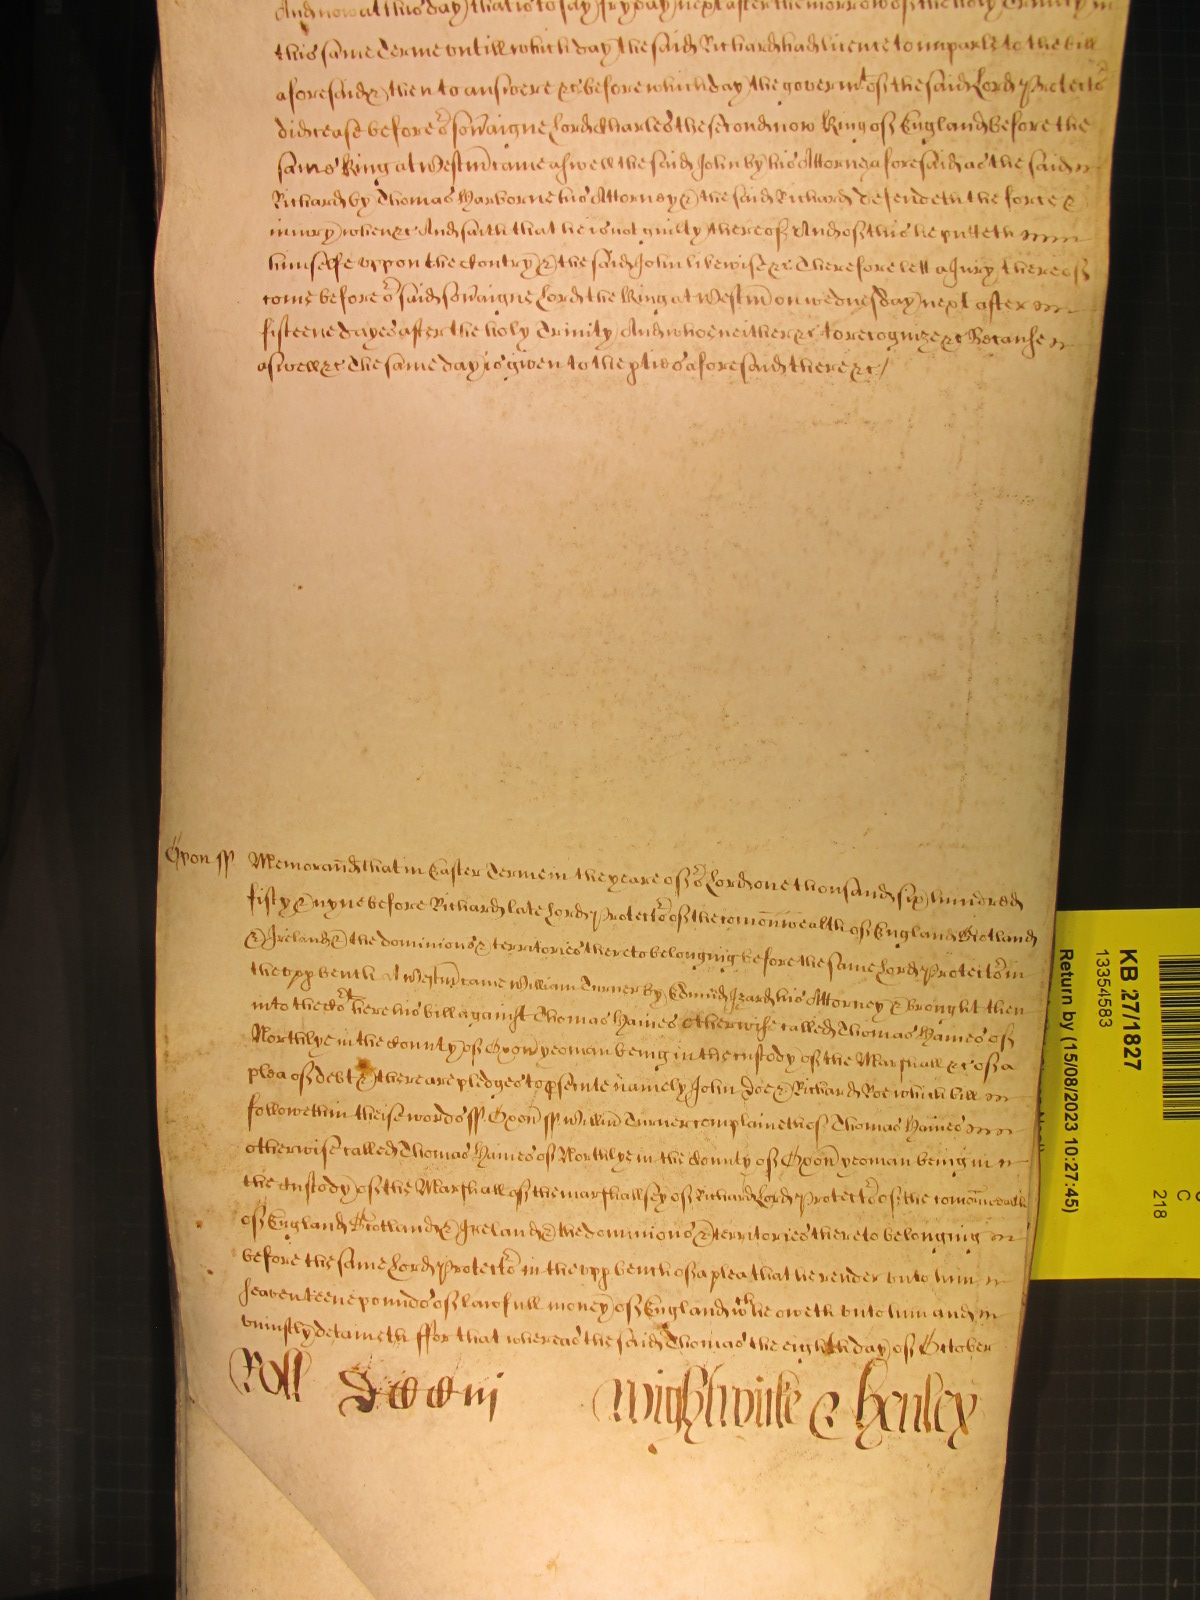 And now at this day that is to say fryday next after the morrow of the holy Trinity in
this same Terme untill which day the said Richard had licence to imparle to the bill
aforesaid & then to answere &c before which day the governmt of the said Lord Protector
did cease before or sov'aigne Lord Charles the second now King of England before the
same King at Westm came aswell the said John by his Attorney aforesaid as the said
Richard by Thomas Harborne his Attorney & the said Richard defendeth the force &
iniury when &c And saith that he is not guilty thereof And of this he putteth
himselfe uppon the Contry & the said John likewise &c Therefore lett a Jury thereof
come before or said sov'aigne Lord the King at Westm on wednesday next after
fifteene dayes after the holy Trinity And who neither &c to recognize &c Because
aswell &c The same day is given to the pties aforesaid there &c
Oxon ss Memorand that in Easter Terme in the yeare of or Lord one thousand six hundred
fifty & nyne before Richard late Lord Protector of the comonwealth of England Scotland
& Ireland & the dominions & territories thereto belonging before the same Lord Protector in
the upp bench at Westm came William Turner by Edmund Izard his Attorney & brought then
into the Cort here his bill against Thomas Haines otherwise called Thomas Haines of
Northlye in the County of Oxon yeoman being in the custody of the Marshall &c of a
plea of debt & there are pledges to psecute namely John Doe & Richard Roe which bill
followeth in theise words ss Oxon ss Willm Turner complaineth of Thomas Haines
otherwise called Thomas Haines of Northlye in the County of Oxon yeoman being in
the custody of the Marshall of the marshallsey of Richard Lord Protector of the comonwealth
of England Scotland & Ireland & the dominions & territories thereto belonging
before the same Lord Protector in the upp bench of a plea that he render unto him
seaventeene pounds of lawfull money of England wch he oweth unto him and
uniustly detaineth ffor that whereas the said Thomas the eighth day of October
Roll Wightwicke & Henley
KB 27/1827
13354583
Return by (15/08/2023 10:27:45)
C
218